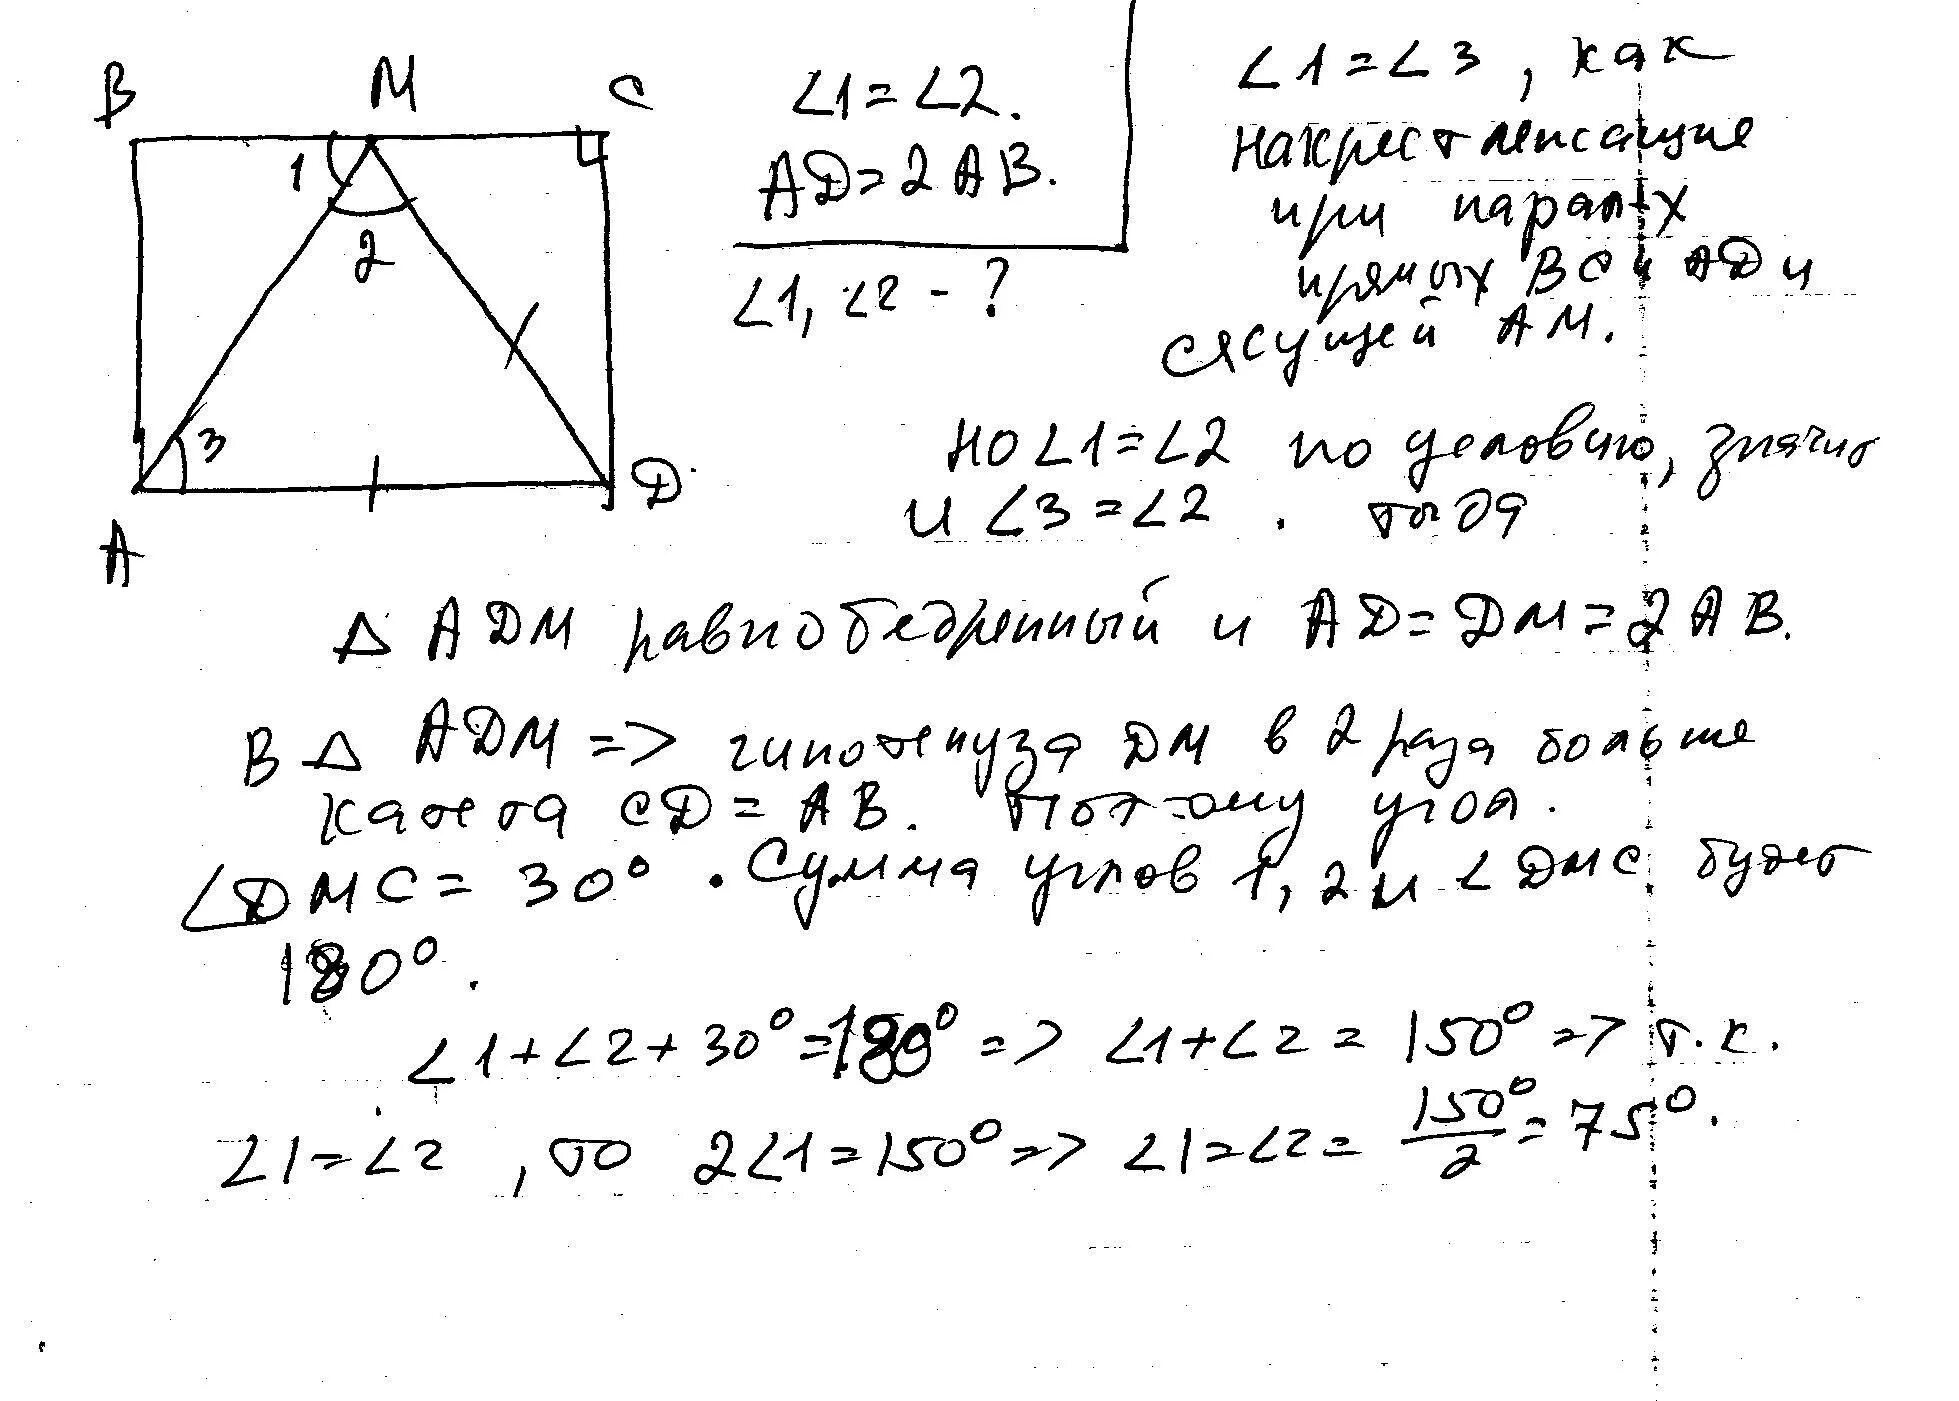 B M C
1
2
3
A D
∠1=∠2.
AD=2AB.
∠1, ∠2 - ?
∠1=∠3, как
накрест лежащие
при парал-х
прямых BC и AD и
сякущей AM.
но ∠1=∠2 по условию, значит
и ∠3=∠2. тогда
△ ADM равнобедренный и AD=DM=2AB.
В △ ADM => гипотенуза DM в 2 раза больше
катета CD=AB. Поэтому угол.
∠DMC=30°. Сумма углов 1, 2 и ∠DMC будет
180°.
∠1+∠2+30°=180° => ∠1+∠2=150° => т.к.
∠1=∠2, то 2∠1=150° => ∠1=∠2=150°/2=75°.